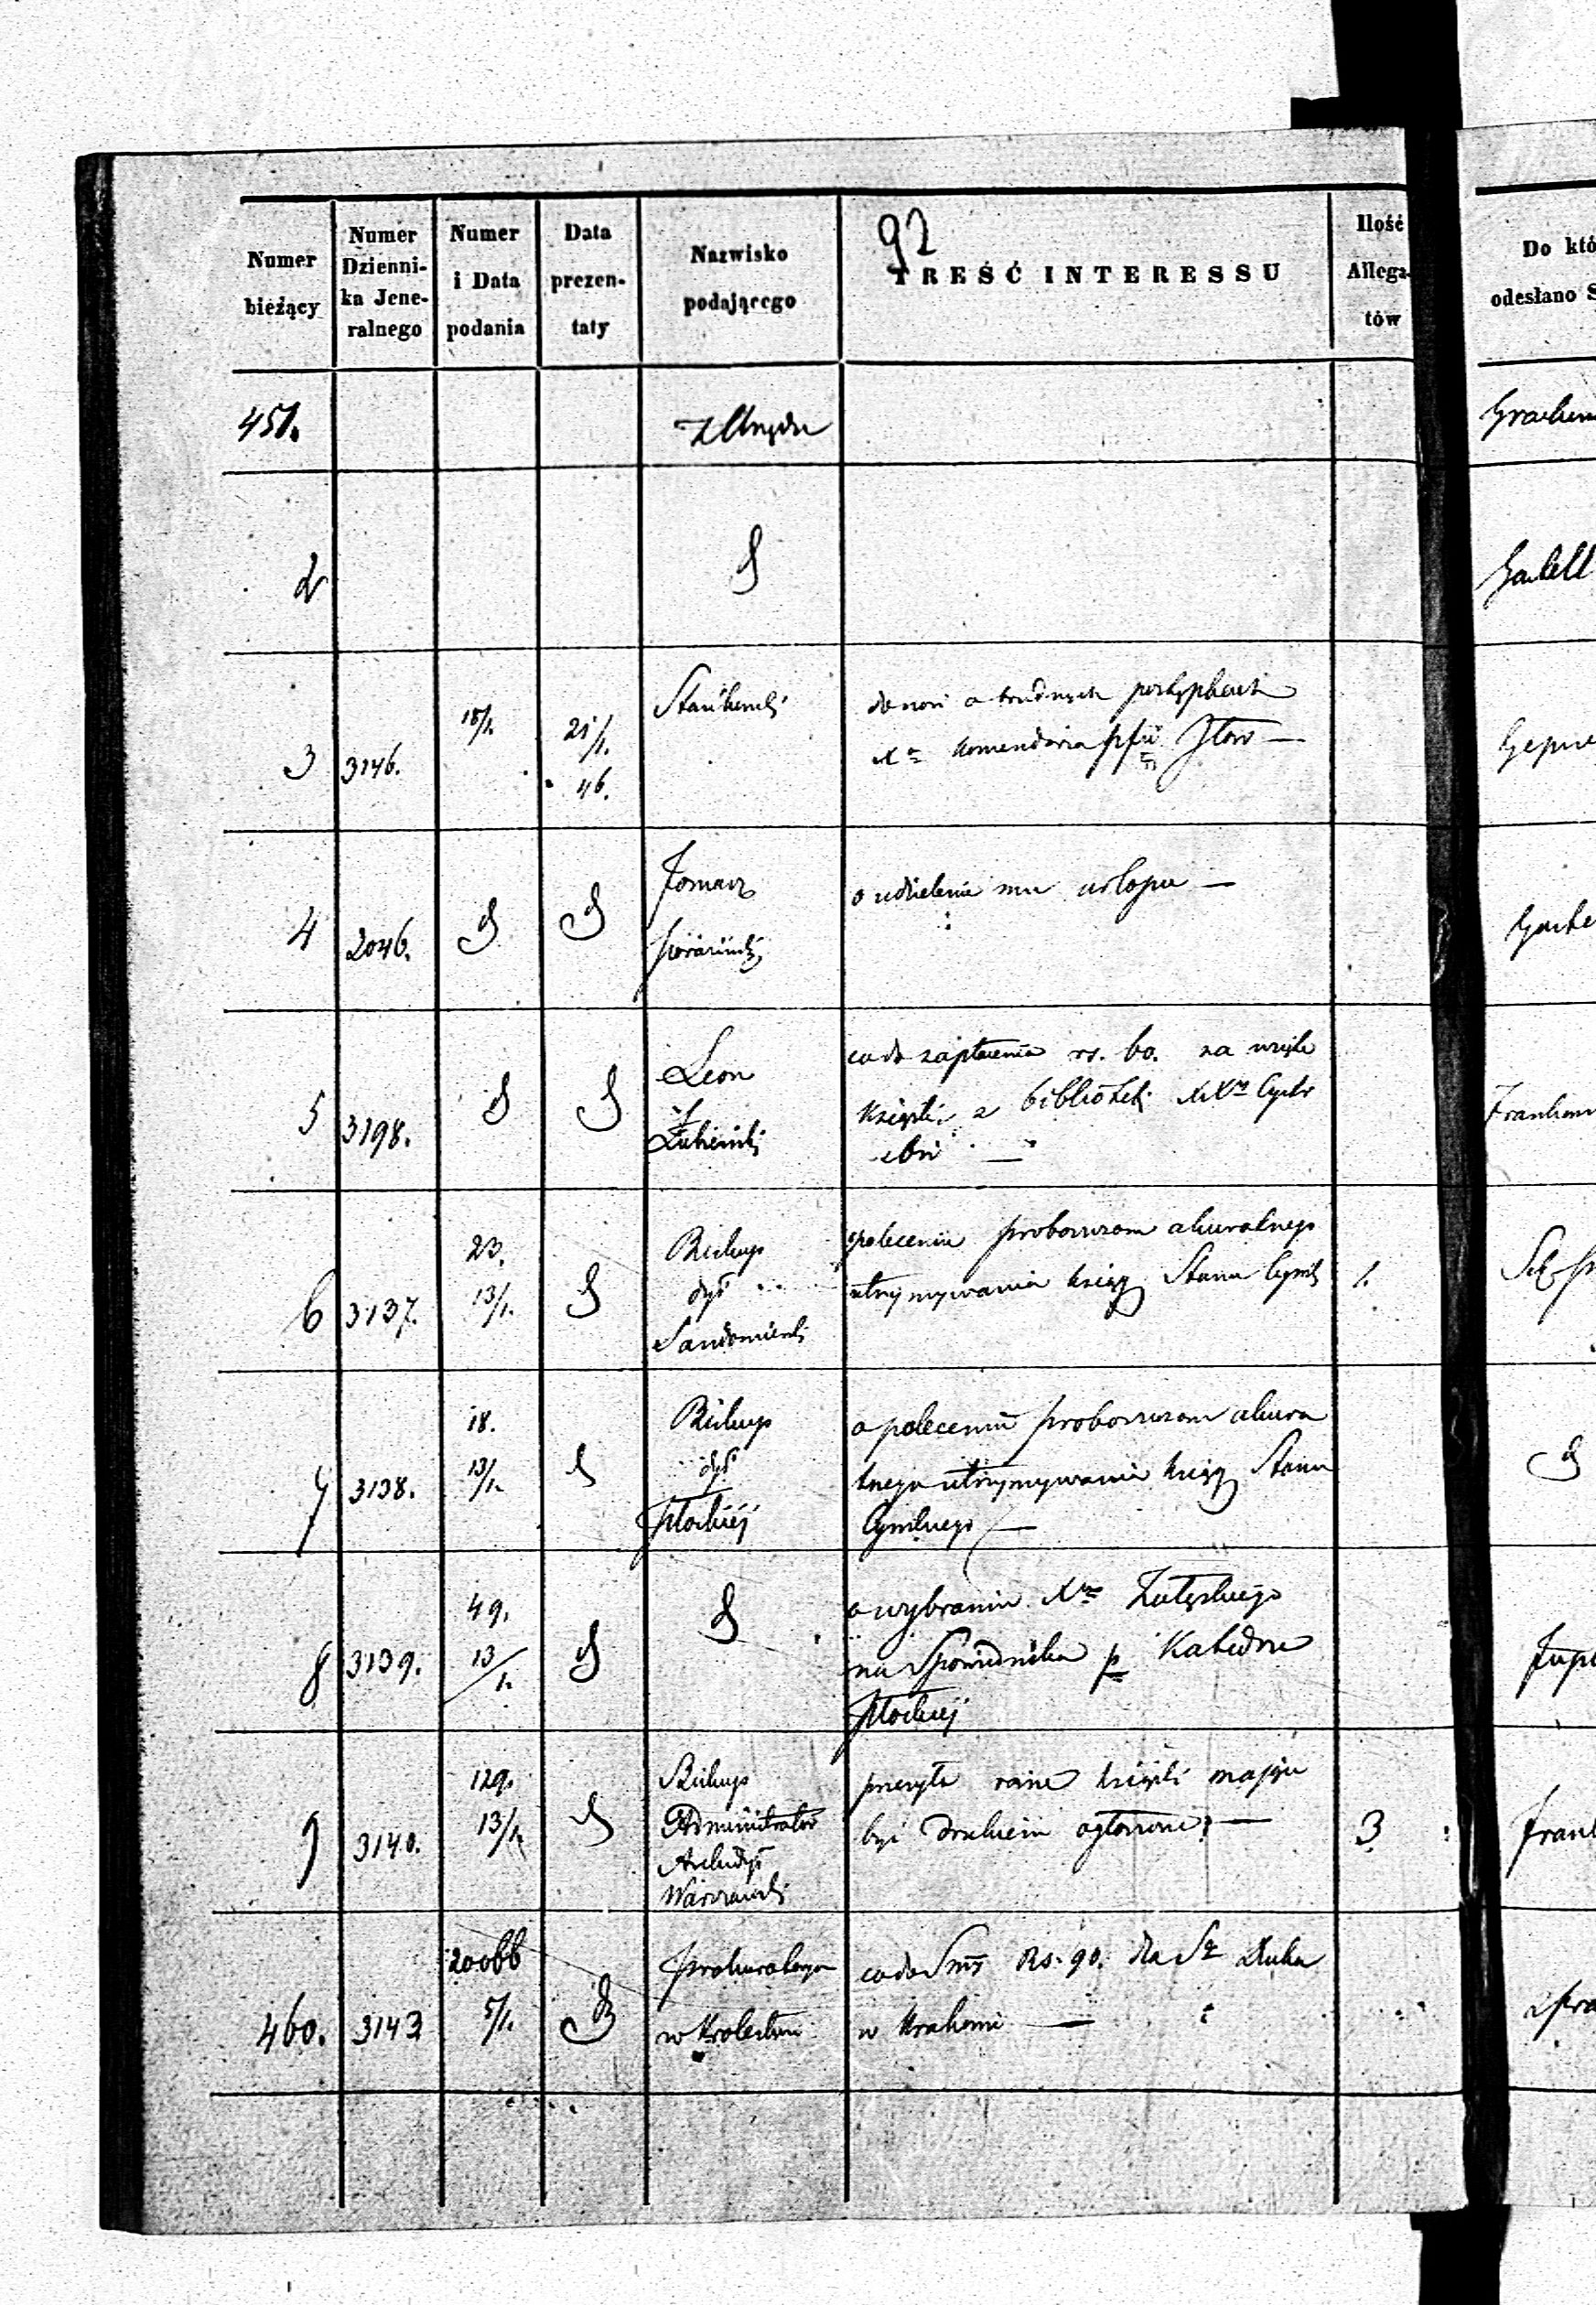 92
Numer bieżący
Numer Dzienni-ka Jene-ralnego
Numer i Data podania
Data prezen-taty
Nazwisko podającego
TREŚĆ INTERESSU
Ilość Allega-tów
Do któ
odesłano S
451. z Urzędu
2 d
3 3146. 18/1. 21/1. 46.
donosi o
Xa Komendaria
4 2046. d d Tomasz
o udzielenie mu urlopu —
5 3198. d d Leon Łubieński
co do zapłacenia rs. 60. za wzięte
Książki z biblioteki XXw Cyster
sów —
6 3137. 23. 13/1. d Biskup dyś Sandomierski
o poleceniu proboszczom akuratnego
utrzymywania ksiąg Stanu Cywil 1.
7 3138. 18. 13/1. d Biskup dyś Płockiej
o poleceniu proboszczom akura
tnego utrzymywania ksiąg Stanu
Cywilnego —
d
8 3139. 49. 13/1. d d
o wybraniu Xa Załęskiego
na Spowiednika p Katedrze
Płockiej
9 3140. 129. 13/1. d Biskup Administrator Archidyś Warszawski
przesyła różne książki mające
być drukiem ogłoszone. — 3
460. 3143 20066 5/1. d Prokuratorya w Królestwie
co do Smy Rs. 90. dla Sgo Ducha
w Krakowie —